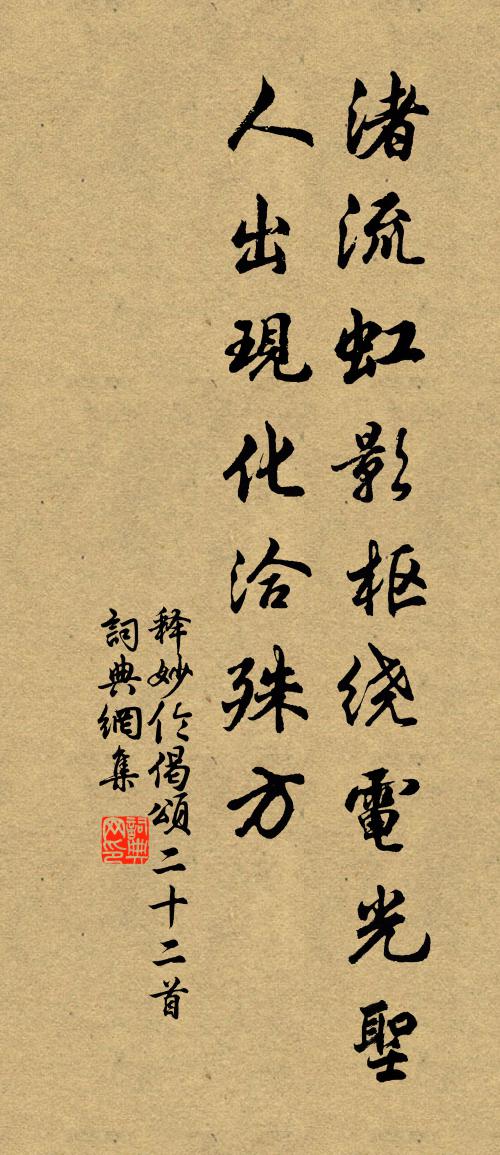 渚流虹影枢绕電光聖
人出現化洽殊方
释妙伦偈頌二十二首
詞典網集
詞典网印